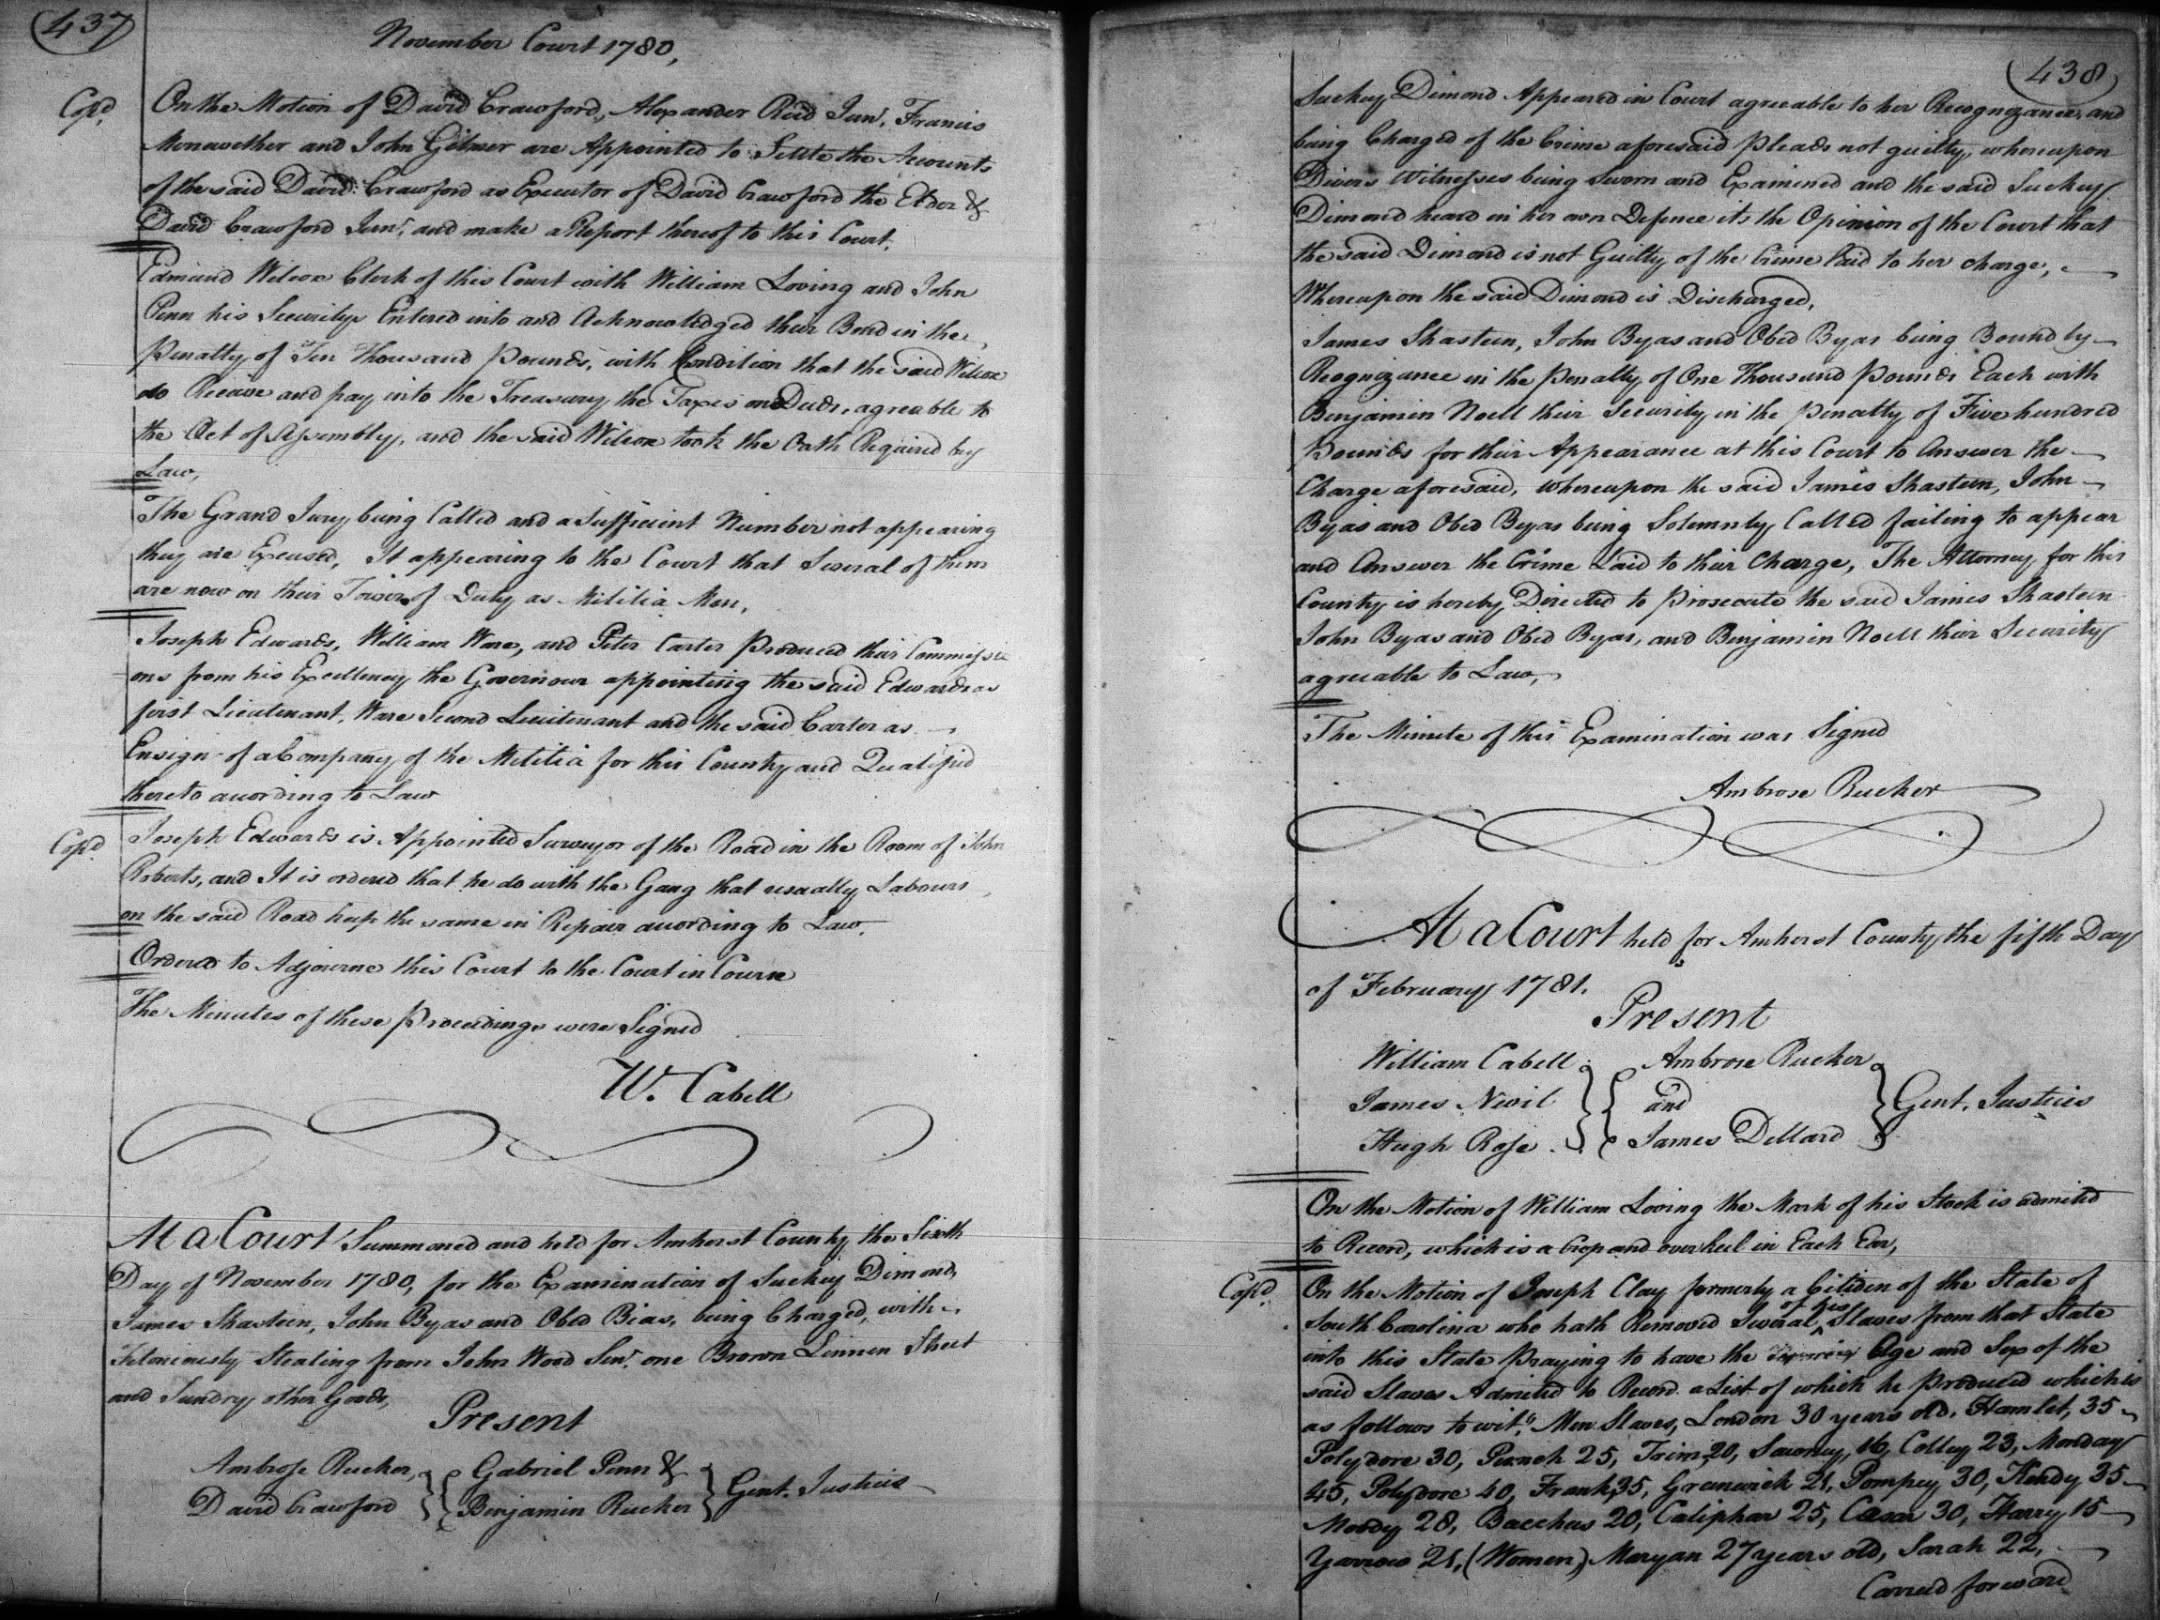 437
November Court 1780,
Cop'd. On the Motion of David Crawford, Alexander Reid Junr. Francis
Merewether and John Gilmer are Appointed to Settle the Accounts
of the said David Crawford as Executor of David Crawford the Elder &
David Crawford Junr. and make a Report thereof to this Court.
Edmund Wilcox Clerk of this Court with William Loving and John
Penn his Security Entered into and Acknowledged their Bond in the
Penalty of Ten Thousand Pounds, with Condition that the said Wilcox
do Receive and pay into the Treasury the Taxes on Deeds, agreable to
the Act of Assembly, and the said Wilcox took the Oath Required by
Law,
The Grand Jury being Called and a Sufficient Number not appearing
they are Excused, It appearing to the Court that Several of them
are now on their Tower of Duty as Militia Men,
Joseph Edwards, William Ware, and Peter Carter Produced their Commissi
ons from his Excellency the Governour appointing the said Edwards as
first Lieutenant, Ware Second Lieutenant and the said Carter as
Ensign of a Company of the Militia for this County and Qualified
thereto according to Law
Cop'd. Joseph Edwards is Appointed Surveyor of the Road in the Room of John
Roberts, and It is ordered that he do with the Gang that usually Labours
on the said Road keep the same in Repair according to Law.
Ordered to Adjourne this Court to the Court in Course
The Minutes of these Proceedings were Signed
W. Cabell
At a Court Summoned and held for Amherst County the Sixth
Day of November 1780, for the Examination of Suckey Dimond,
James Shasteen, John Byas and Obed Bias, being Charged, with
Feloniously Stealing from John Wood Senr. one Brown Linnen Sheet
and Sundry other Goods,
Present
Ambrose Rucker, Gabriel Penn &
David Crawford Benjamin Rucker Gent. Justices
438
Suckey Dimond Appeared in Court agreeable to her Recognozance, and
being Charged of the Crime aforesaid Pleads not guilty, whereupon
Divers Witnesses being Sworn and Examined and the said Suckey
Dimond heard in her own Defence its the Opinion of the Court that
the said Dimond is not Guilty of the Crime Laid to her charge,
Whereupon the said Dimond is Discharged,
James Shasteen, John Byas and Obed Byas being Bound by
Recognizance in the Penalty of One Thousand Pounds Each with
Benjamin Noell their Security in the Penalty of Five hundred
Pounds for their Appearance at this Court to Answer the
Charge aforesaid, whereupon the said James Shasteen, John
Byas and Obed Byas being Solemnly Called failing to appear
and Answer the Crime Laid to their Charge, The Attorney for this
County is hereby Directed to Prosecute the said James Shasteen
John Byas and Obed Byas, and Benjamin Noell their Security
agreeable to Law,
The Minute of this Examination was Signed
Ambrose Rucker
At a Court held for Amherst County the fifth Day
of February 1781.
Present
William Cabell Ambrose Rucker
James Nevil and Gent. Justices
Hugh Rose James Dillard
On the Motion of William Loving the Mark of his Stock is admited
to Record, which is a Crop and over keel in Each Ear,
Cop'd. On the Motion of Joseph Clay formerly a Citiden of the State of
South Carolina who hath Removed Several of his Slaves from that State
into this State Praying to have the Age and Sex of the
said Slaves Admited to Record a List of which he Produced which is
as follows to wit, Men Slaves, London 30 years old, Hamlet, 35
Polydore 30, Punch 25, Trim 20, Sawney, 16, Colley 23, Monday
45, Polydore 40, Frank 35, Greenwich 21, Pompey 30, Kendy 35
Moody 28, Bacchus 20, Caliphar 25, Cæsar 30, Harry 15
Yarrow 21, (Women) Maryan 27 years old, Sarah 22,
Carried forward